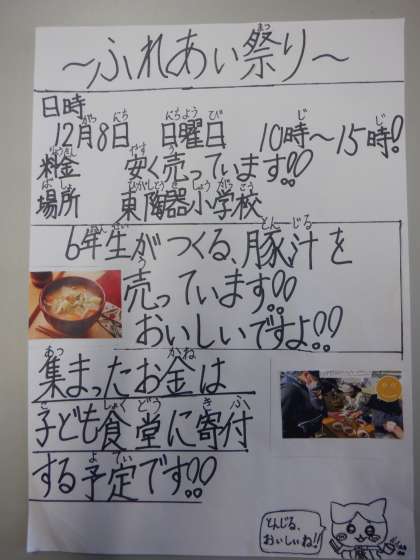 ～ふれあい祭り～
日時
12月8日 日曜日 10時～15時!
料金 安く売っています!!
場所 東陶器小学校
6年生がつくる、豚汁を
売っています!!
おいしいですよ!!
集まったお金は
子ども食堂に寄付
する予定です!!
とんじる、
おいしいね!!